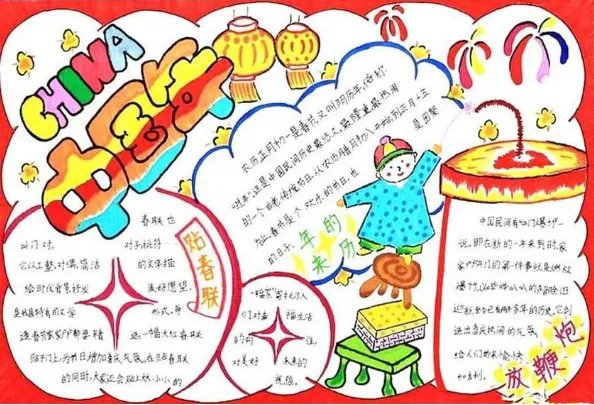 CHINA
中国年
农历正月初一是春节,又叫阴历年,俗称
"过年"。这是中国民间历史最悠久、最隆重最热闹
的一个古老传统节日。从农历腊月初八开始到正月十五
止,春节是个欢乐的节日,也是团聚
的日子。
年的
来历
春联也
叫门对、对子桃符
它以工整、对偶、简洁的文字描
绘时代背景抒发美好愿望,
是我国特有的文学形式,每
逢春节家家户户都要精选一幅大红春联
贴于门上,为节日增加喜庆气氛。在贴春联
的同时,大家还会贴上大小小的
贴春联
"福字"寄托了人
们对幸福生活
的向往,
对美好未来的
祝福。
中国民间有"开门爆竹"一
说,即在新的一年来到时,家
家户户开门的第一件事就是燃放
爆竹,以哔哔叭叭的
爆竹已有两千多年的历史,它创
造出喜庆热闹的气氛
给人们带来愉快
和吉利。
放鞭炮